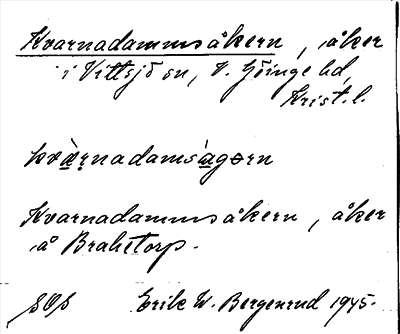 Kvarnadammsåkern, åker
i Vittsjö sn, V. Göinge hd,
Krist. l.
kvàrnadamsågərn
Kvarnadammsåkern, åker
å Brahetorp.
Erik W. Bergenrud 1945.